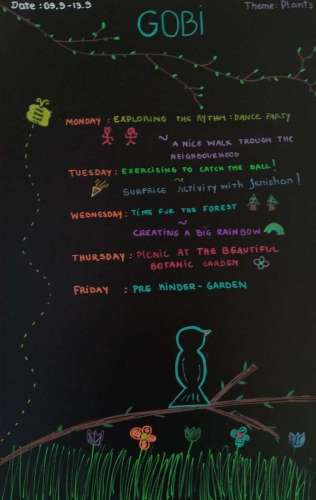 Date : 09.9-13.9
Theme: Plants
GOBI
MONDAY : EXPLORING THE RYTHM : DANCE PARTY
~ A NICE WALK TROUGH THE
NEIGHBOURHOOD
TUESDAY : EXERCISING TO CATCH THE BALL!
~ SURPRICE ACTIVITY WITH Jenishan!
WEDNESDAY : TIME FOR THE FOREST
~ CREATING A BIG RAINBOW
THURSDAY : PICNIC AT THE BEAUTIFUL
BOTANIC GARDEN
FRIDAY : PRE KINDER-GARDEN